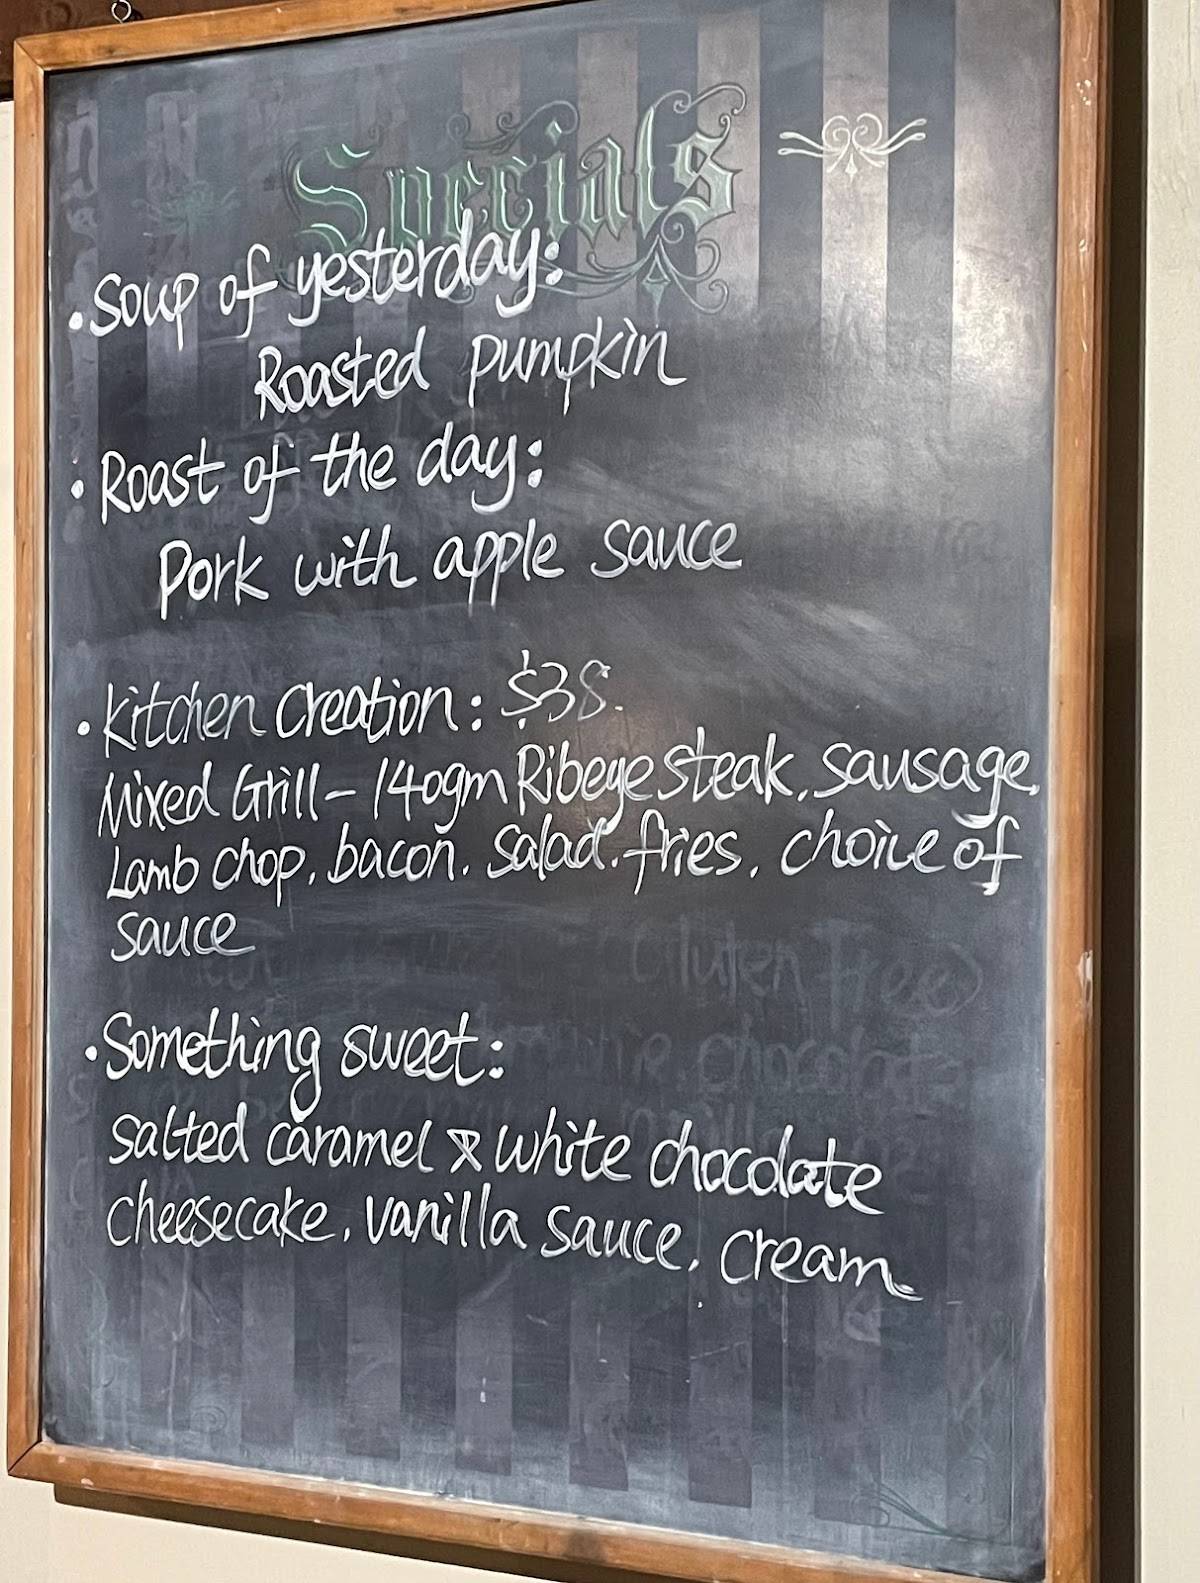 Specials
• Soup of yesterday:
Roasted pumpkin
• Roast of the day:
Pork with apple sauce
• Kitchen creation: $38.
Mixed Grill - 140gm Ribeye steak, sausage,
Lamb chop, bacon, salad, fries, choice of
sauce
Gluten Free)
• Something sweet:
chocolate
Salted caramel & white chocolate
cheesecake, vanilla sauce, cream